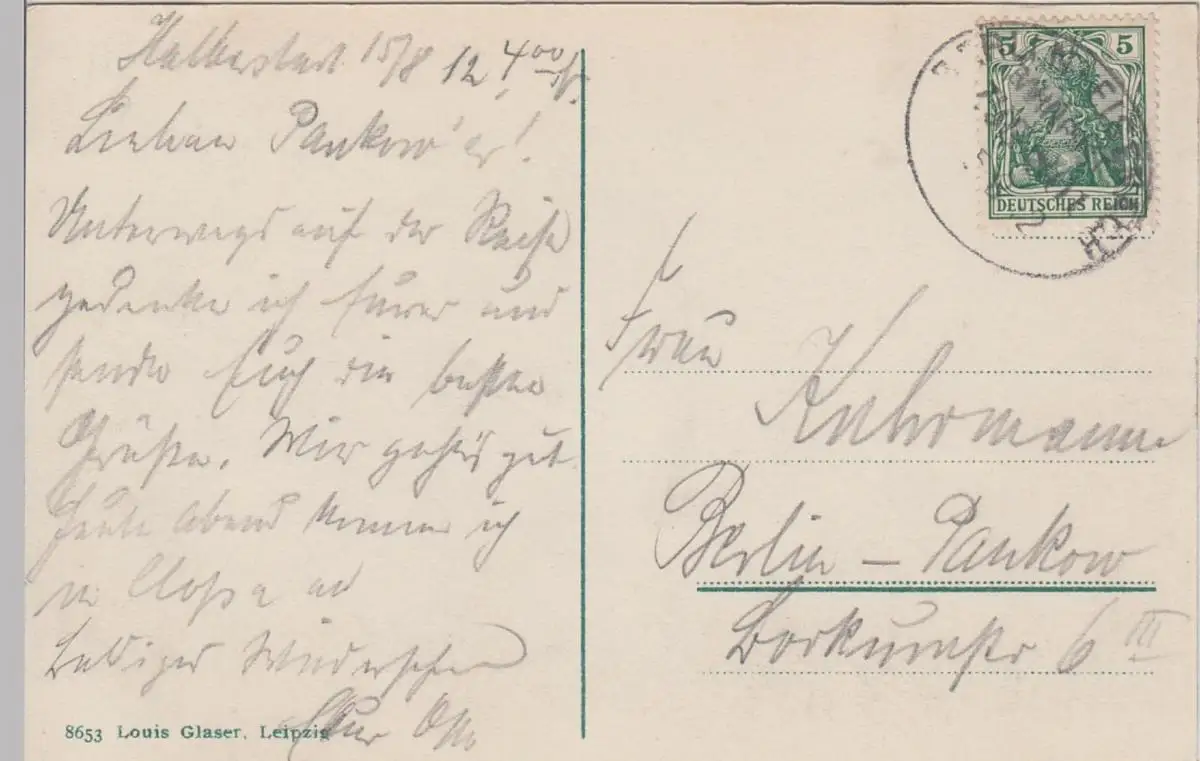 Halberstadt 15/8 12, 4 00
Lieben Pankow'er!
Unterwegs auf der Reise
gedenke ich Eurer und
sende Euch die besten
Grüße. Mir geht's gut.
Heute Abend komme ich
in an
Baldiges Wiedersehen
Euer Otto
8653 Louis Glaser, Leipzig
5 5
DEUTSCHES REICH
Frau
Kuhrmann
Berlin - Pankow
Borkumstr 6 III